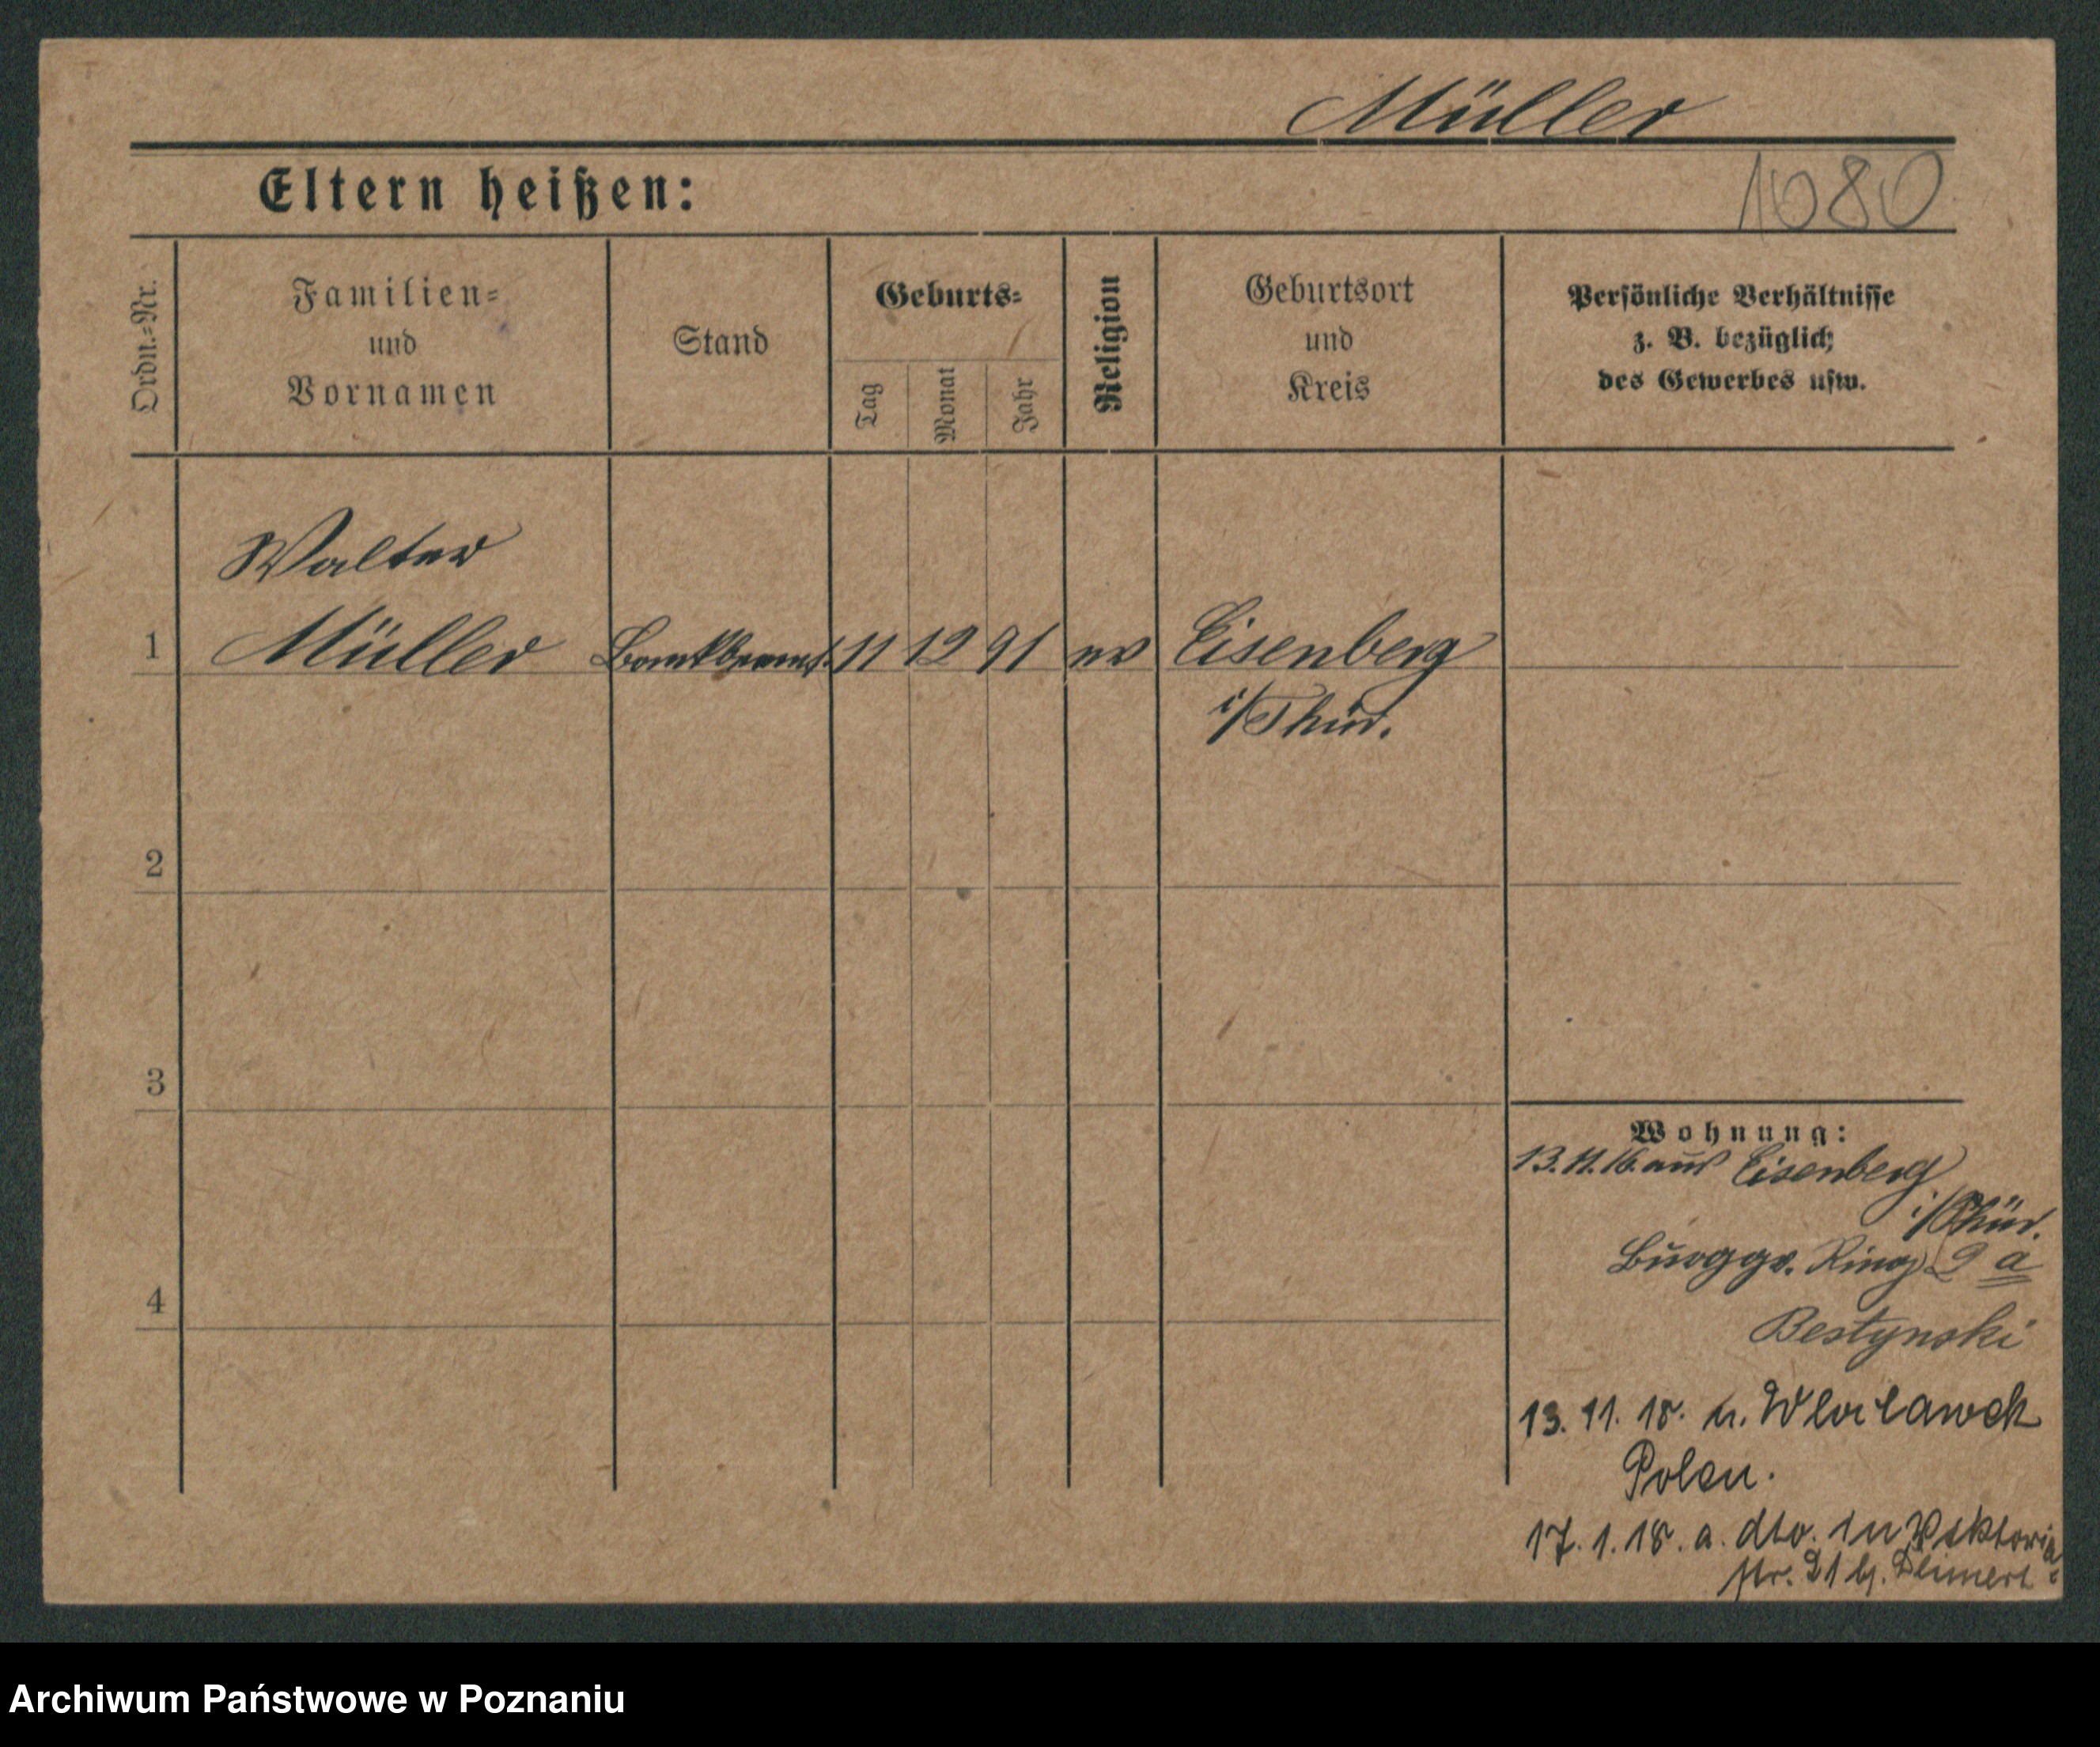 Müller
Eltern heißen:
1080
Ordn.=Nr.
Familien=
und
Vornamen
Stand
Geburts=
Tag
Monat
Jahr
Religion
Geburtsort
und
Kreis
Persönliche Verhältnisse
z. B. bezüglich
des Gewerbes usw.
Walter
1 Müller Bankbeamt. 11 12 91 ev Eisenberg
i/Thür.
2
3
4
Wohnung:
13. 11. 16. aus Eisenberg
i/Thür.
Burggr. Ring 2 a
Bestynski
13. 11. 18. n. Wloclawek
Polen.
17. 1. 18. a. dto. in Viktoria
str. 21 b.
Archiwum Państwowe w Poznaniu